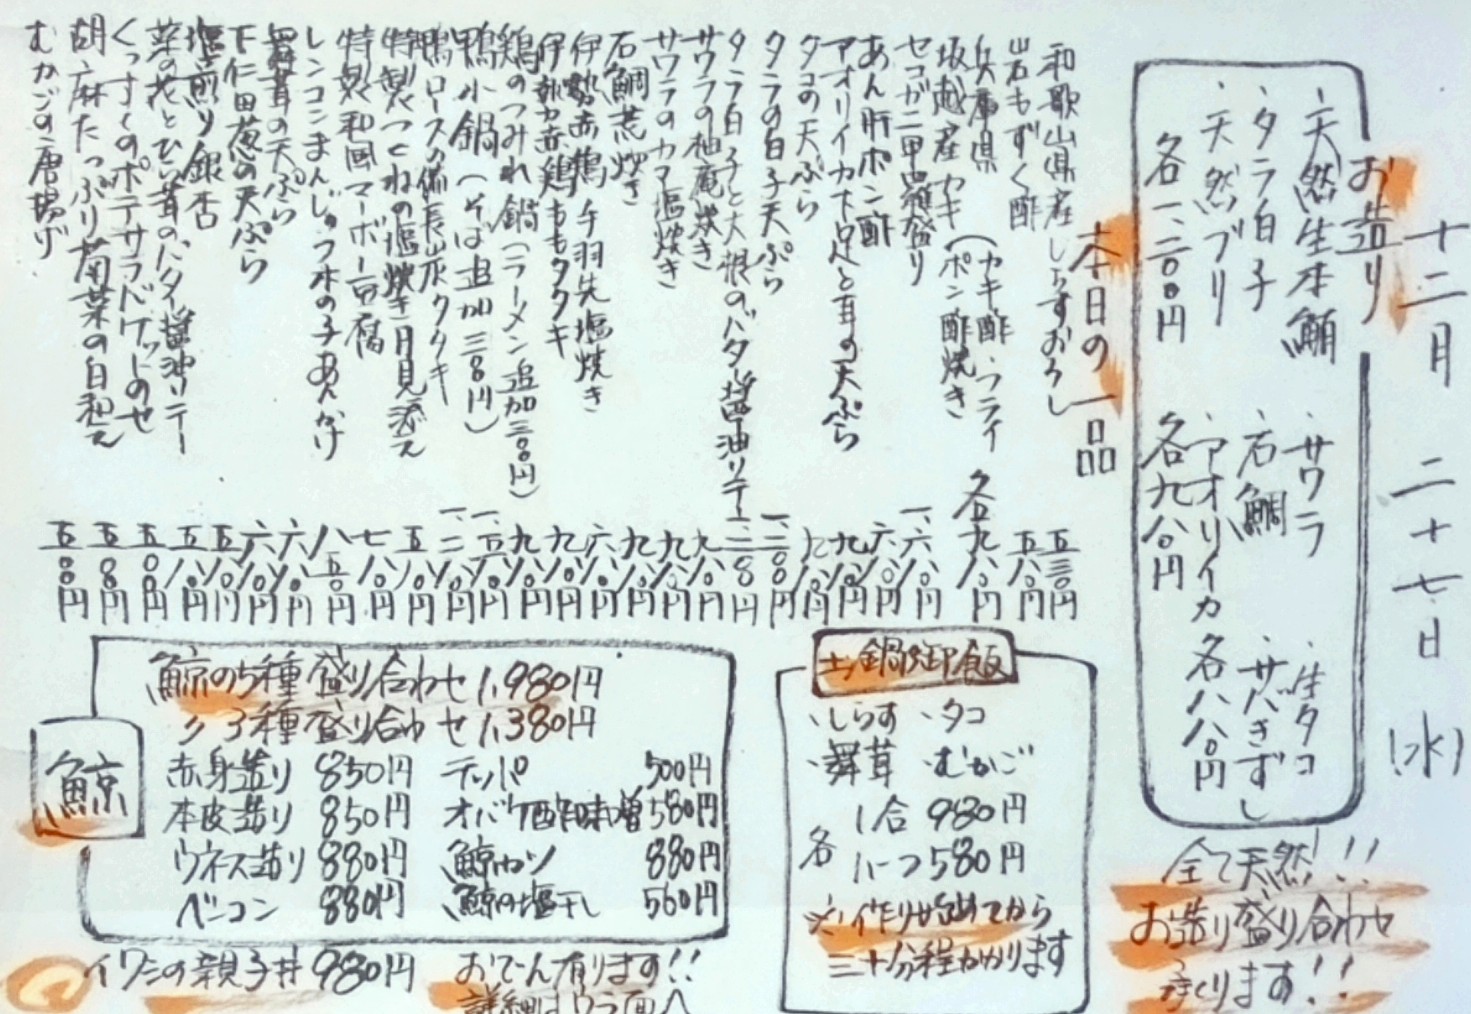 十二月 二十七日 (水)
お造り
・天然生本鮪 ・サワラ ・生タコ
・タラ白子 ・石鯛 ・サバきずし
・天然ブリ ・アオリイカ 各八八〇円
各一、二〇〇円 各九八〇円
全て天然!!
お造り盛り合わせ
承ります!!
本日の一品
和歌山県産しらすおろし 五三〇円
岩もずく酢 五八〇円
兵庫県坂越産カキ(カキ酢・フライ・ポン酢焼き) 各九八〇円
セコガニ甲羅盛り 一、六八〇円
あん肝ポン酢 六八〇円
アオリイカ下足と耳の天ぷら 九八〇円
タコの天ぷら 九八〇円
タラの白子天ぷら
タラ白子と大根のバター醤油ソテー
サワラの柚庵焼き 九八〇円
サワラのカマ塩焼き 九八〇円
石鯛荒炊き 九八〇円
伊勢赤鶏手羽先塩焼き 六八〇円
伊勢赤鶏ももタタキ 九八〇円
鶏のつみれ鍋(ラーメン追加三〇〇円) 九八〇円
鴨小鍋(そば追加三〇〇円)
鴨ロースの備長炭タタキ
特製つくねの塩焼き月見添え 五八〇円
特製和風マーボー豆腐 七八〇円
レンコンまんじゅう木の子あんかけ 八五〇円
舞茸の天ぷら 六八〇円
下仁田葱の天ぷら 六八〇円
塩煎り銀杏 五八〇円
菜の花とひら茸のバター醤油ソテー 五八〇円
くっすくのポテサラバケットのせ 五〇〇円
胡麻たっぷり菊菜の白和え 五八〇円
むかごの唐揚げ 五〇〇円
土鍋御飯
・しらす ・タコ
・舞茸 ・むかご
各 1合 980円
ハーフ 580円
※作り始めてから
三十分程かかります
鯨
鯨の5種盛り合わせ 1,980円
〃 3種盛り合わせ 1,380円
赤身造り 850円 テッパ 500円
本皮造り 850円 オバケ酢味噌 580円
ウネス造り 880円 鯨カツ 880円
ベーコン 880円 鯨の塩干し 560円
イワシの親子丼 980円 おでん有ります!!
詳細はウラ面へ